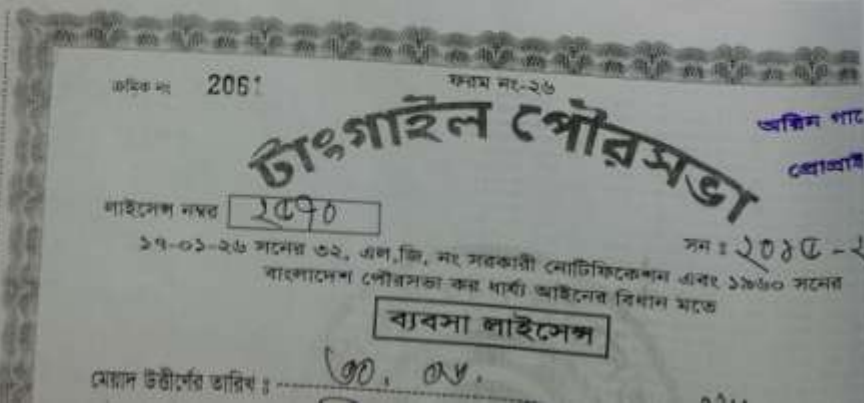 ক্রমিক নং 2061 ফরম নং-২৬
টাংগাইল পৌরসভা
লাইসেন্স নম্বর ২৫৭০
সন : ২০১৫ -
১৭-০১-২৬ সনের ৩২, এল,জি, নং সরকারী নোটিফিকেশন এবং ১৯৬০ সনের
বাংলাদেশ পৌরসভা কর ধার্য্য আইনের বিধান মতে
ব্যবসা লাইসেন্স
মেয়াদ উত্তীর্ণের তারিখ : ৩০.